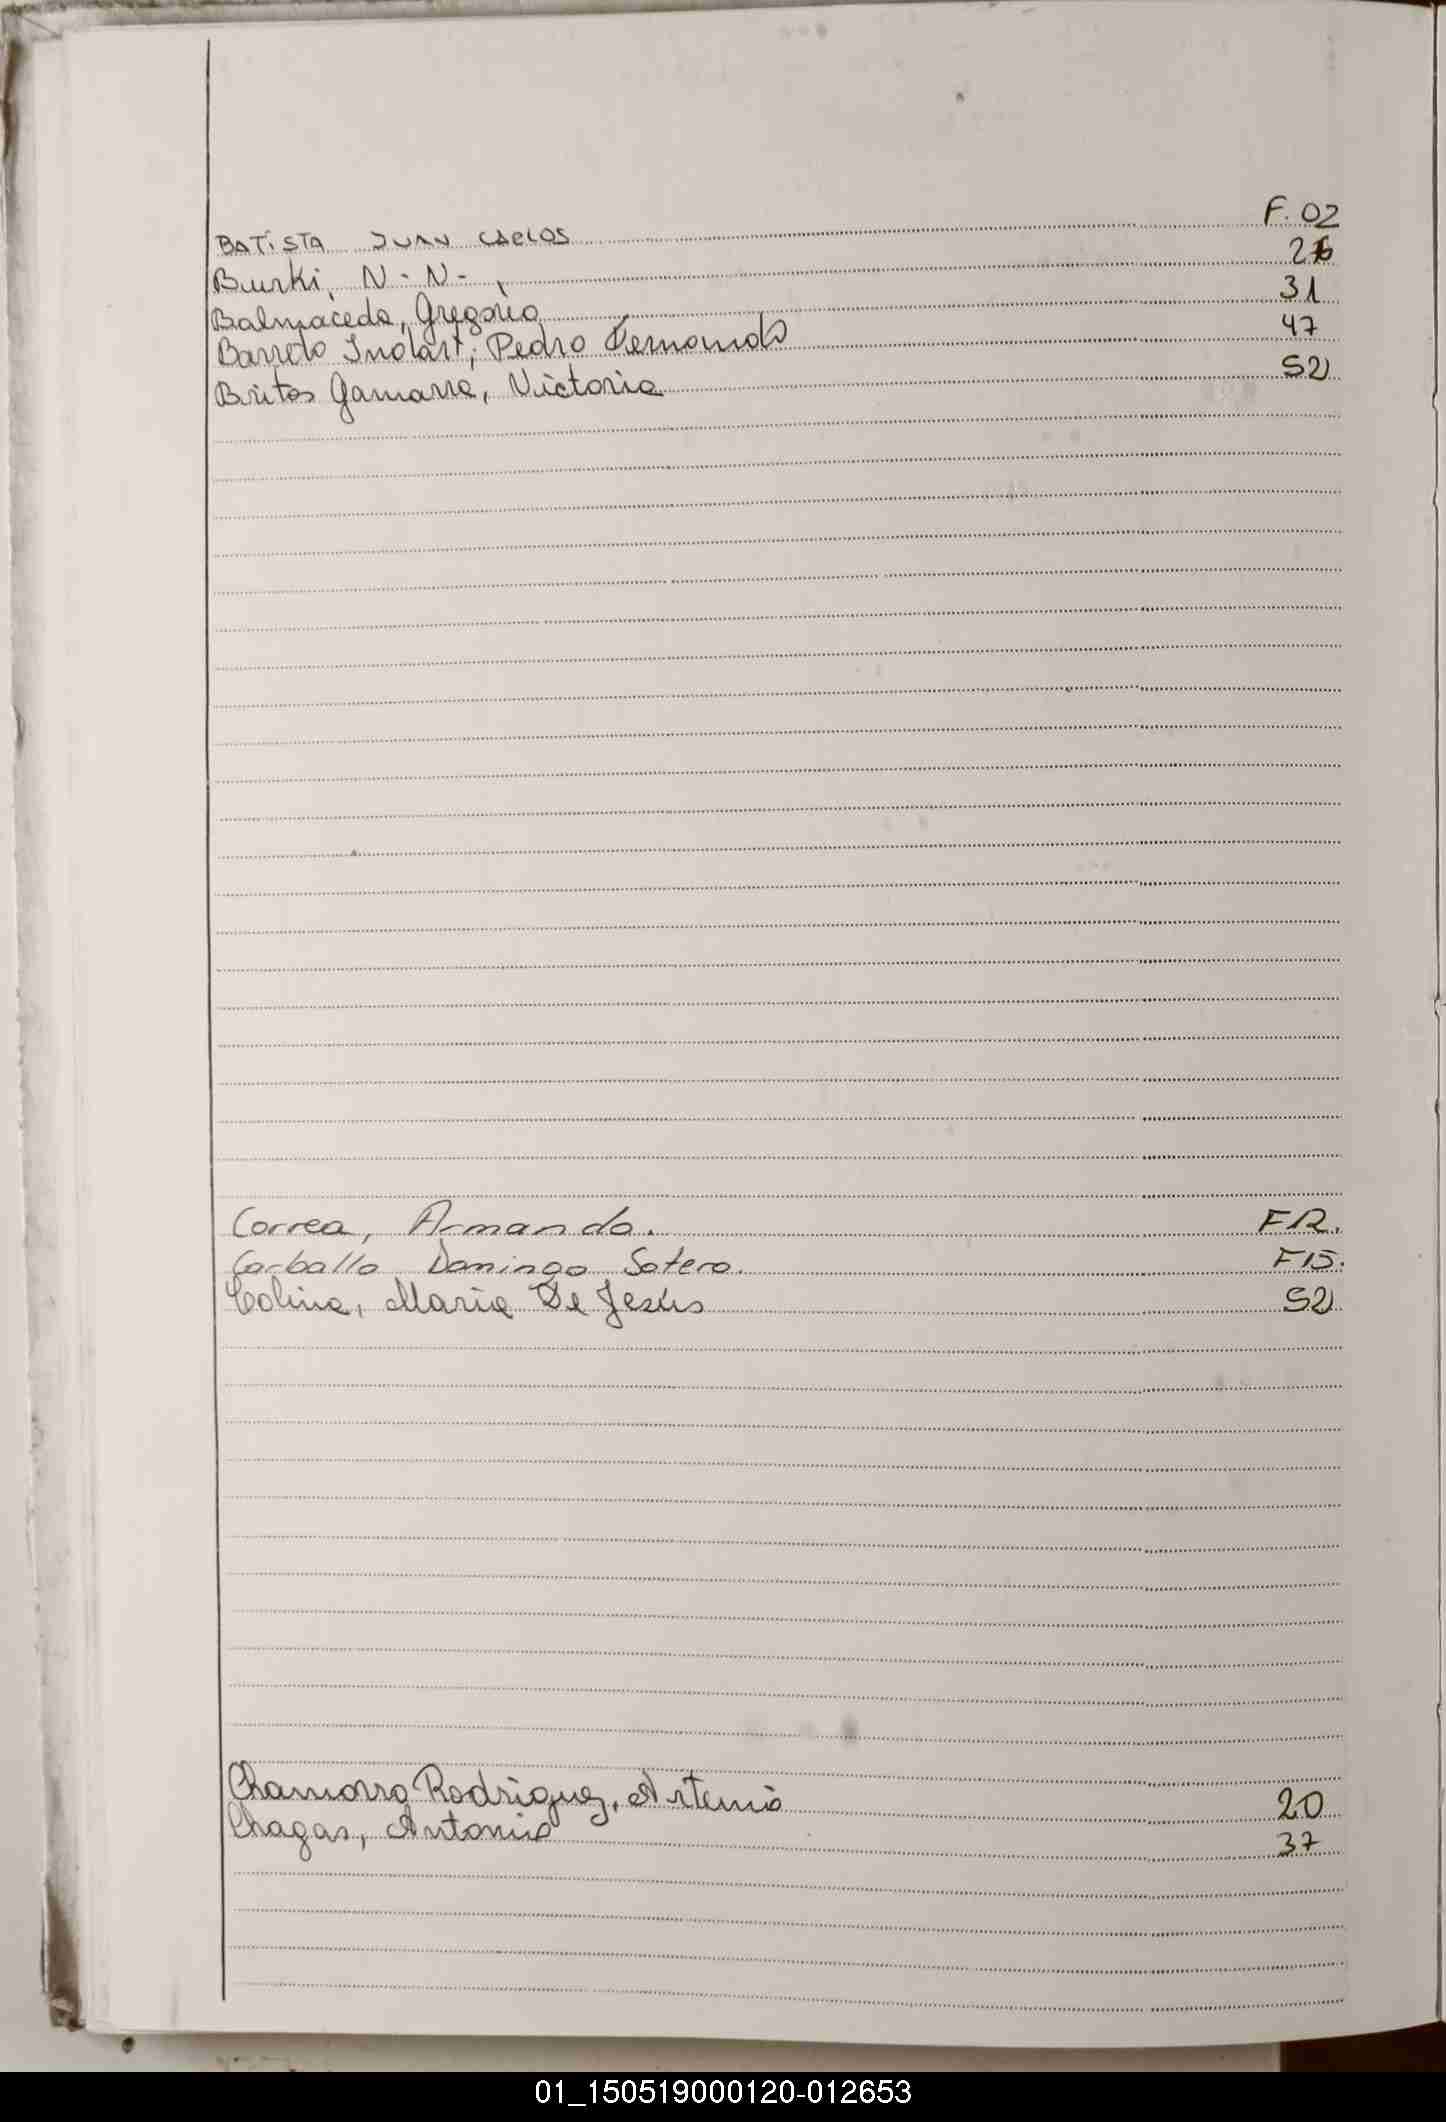 BATISTA JUAN CARLOS F. 02
Burki, N. N. 26
Balmaceda, Gregorio 31
Barreto Insfart, Pedro Fernando 47
Britos Gamarra, Victoria 52
Correa, Armando. F12.
Carballo Domingo Sotero. F15.
Colina, Maria De Jesús 52
Chamorro Rodriguez, Artemio 20
Chagas, Antonio 37
01_150519000120-012653